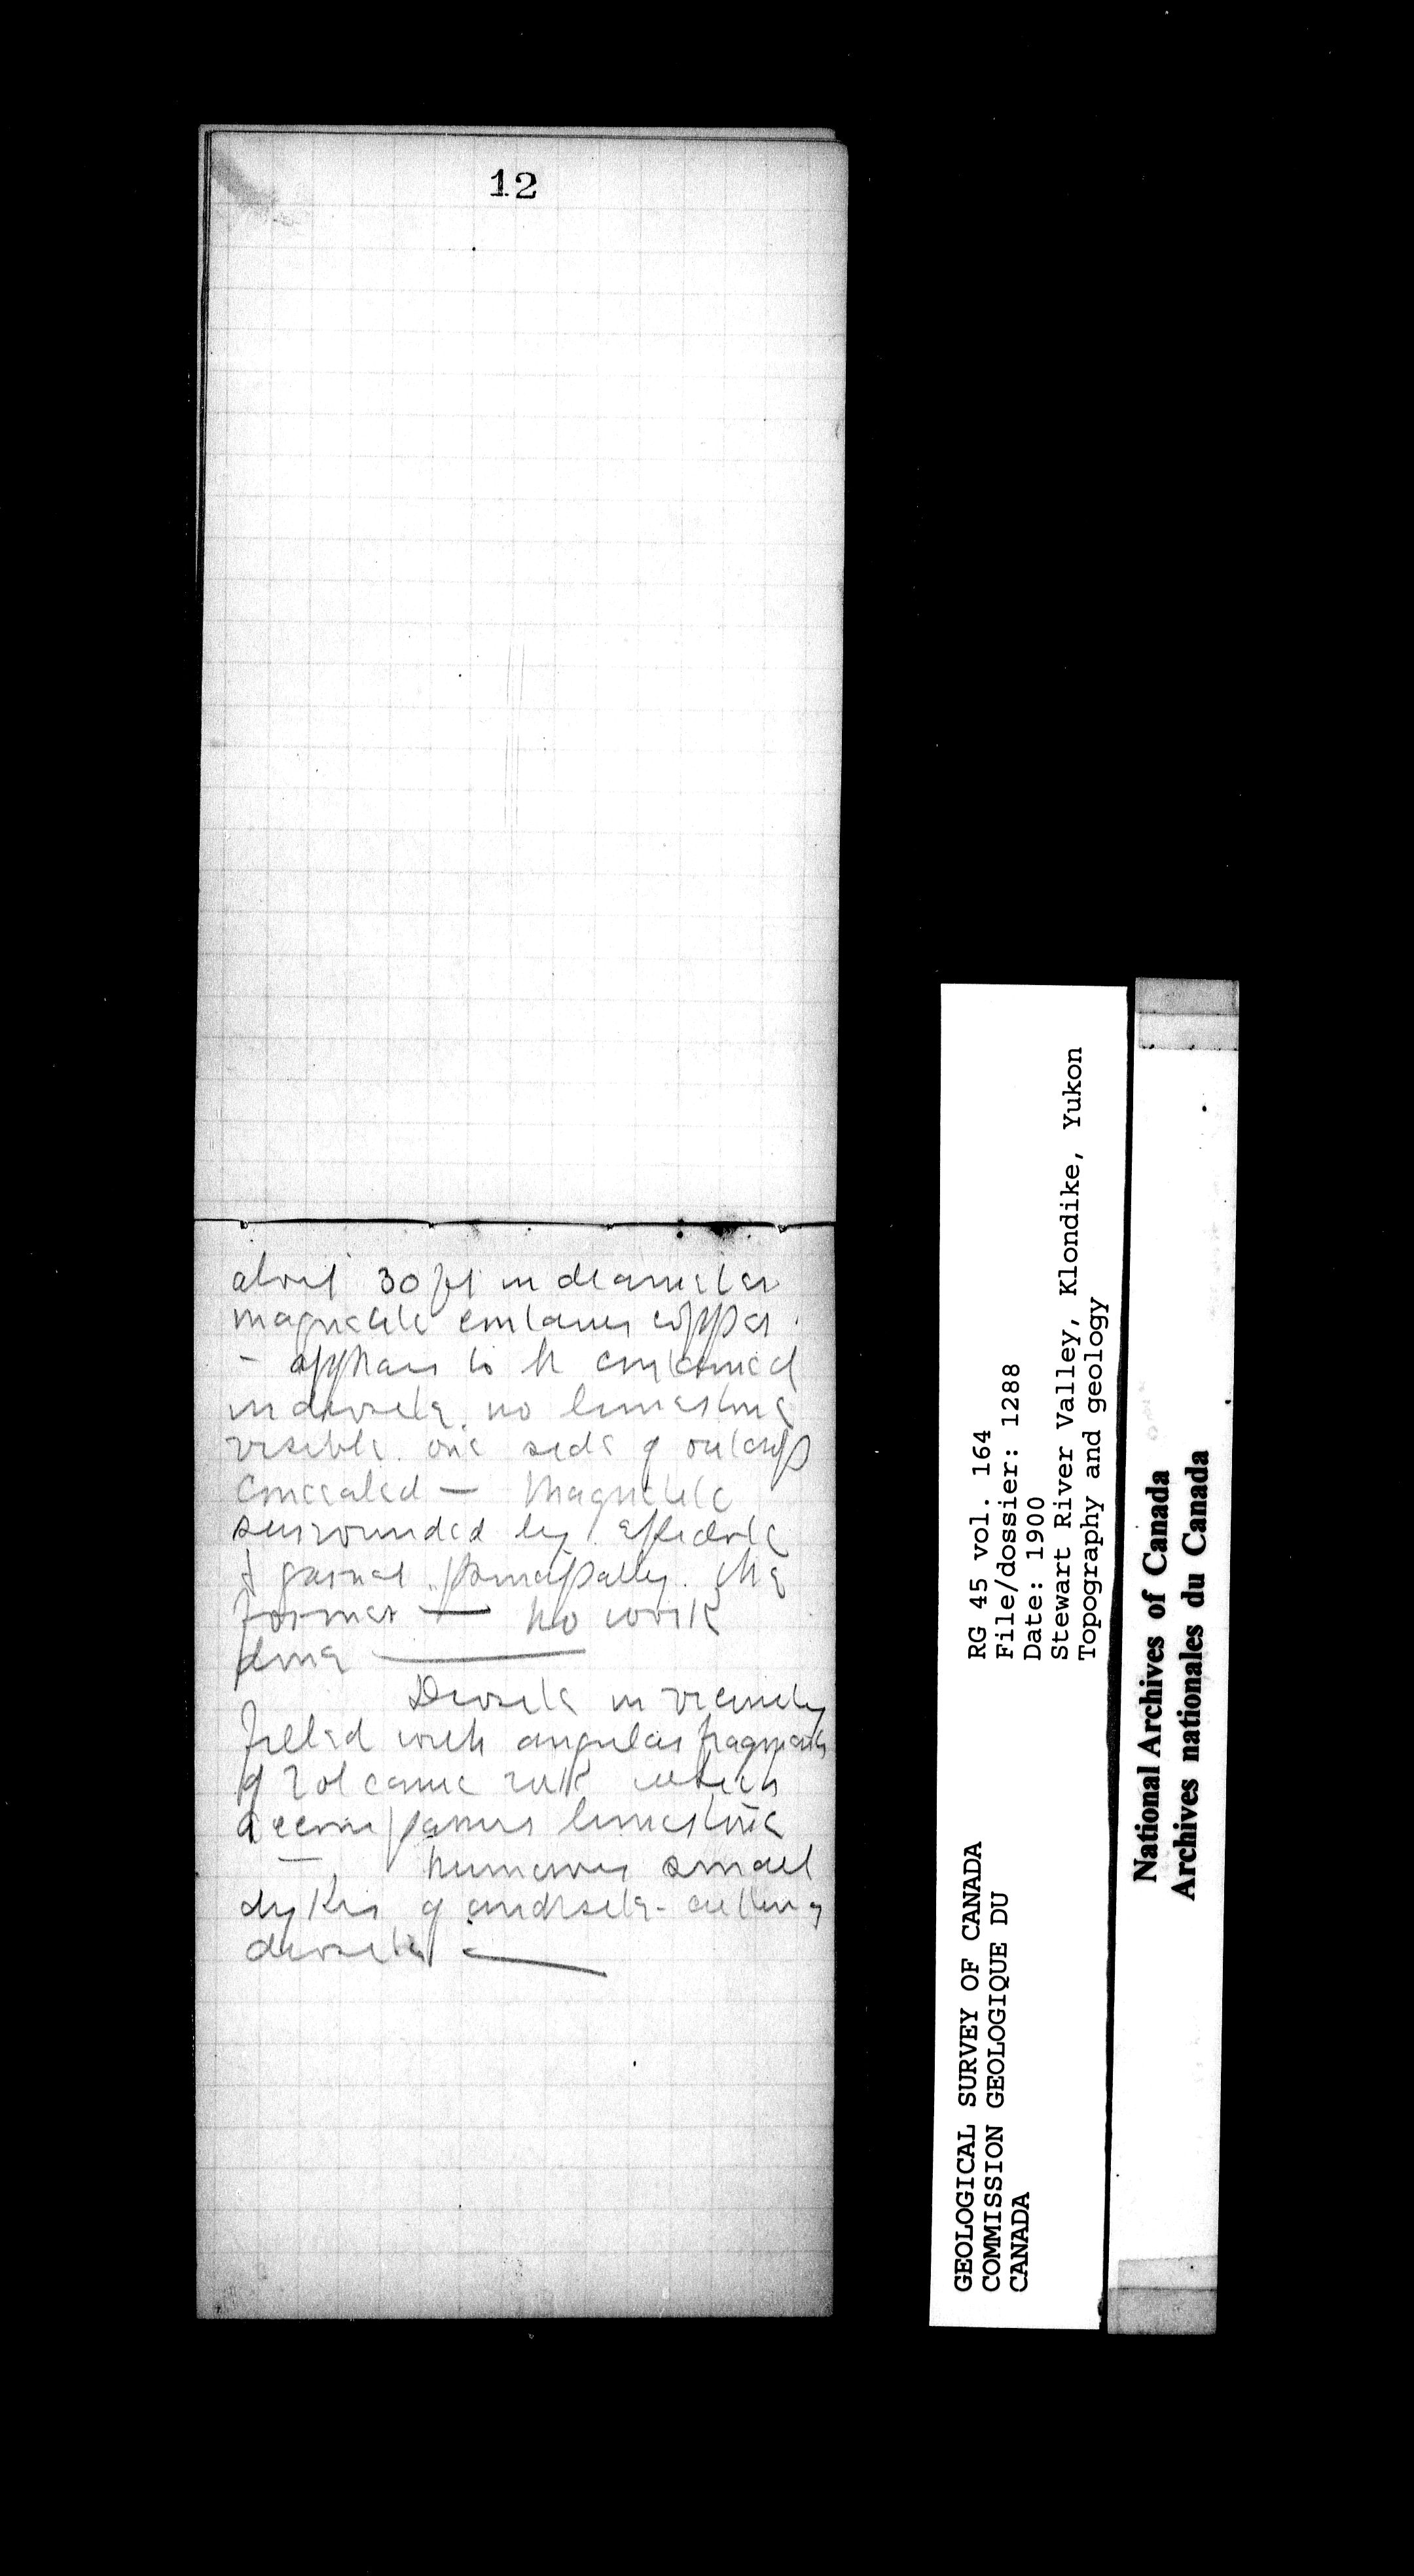 12
about 30 ft in diameter
magnetite contains copper.
- appears to be contained
in diorite. no limestone
visible. one side of outcrop
concealed — Magnetite
surrounded by epidote
& garnet principally. the
former — no work
done —
Diorite in vicinity
filled with angular fragments
of volcanic rock which
accompanies limestone
— numerous small
dykes of andesite cutting
diorite —
GEOLOGICAL SURVEY OF CANADA
COMMISSION GEOLOGIQUE DU
CANADA
RG 45 vol. 164
File/dossier: 1288
Date: 1900
Stewart River Valley, Klondike, Yukon
Topography and geology
National Archives of Canada
Archives nationales du Canada